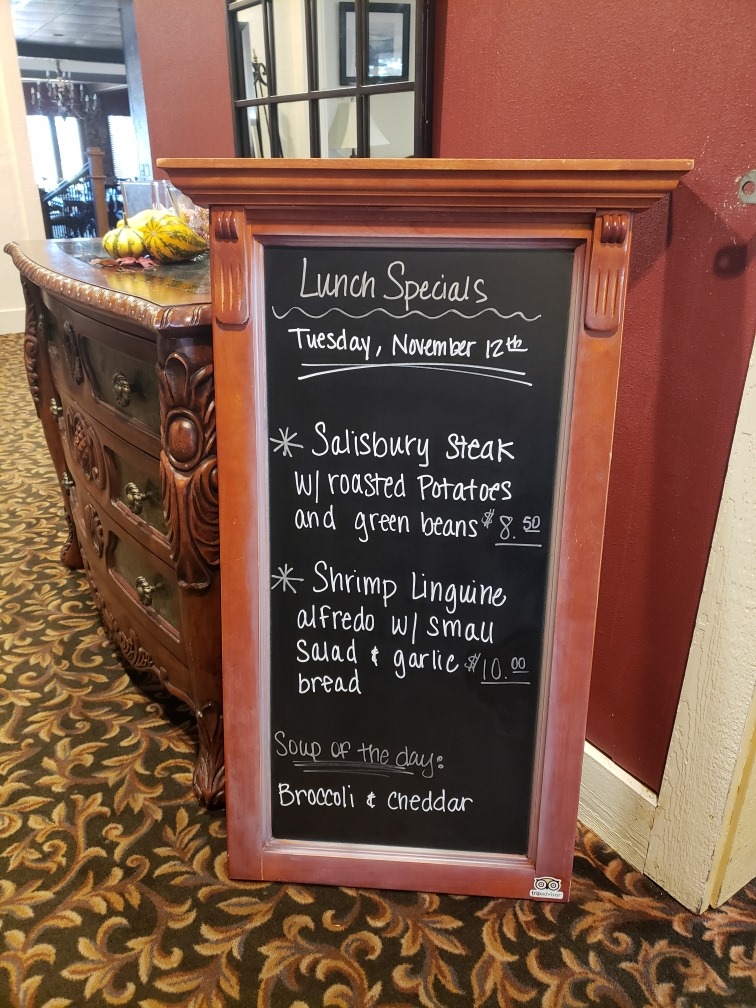 Lunch Specials
Tuesday, November 12th
* Salisbury Steak
w/ roasted Potatoes
and green beans $8.50
* Shrimp Linguine
alfredo w/ small
Salad & garlic $10.00
bread
Soup of the day:
Broccoli & cheddar
tripadvisor